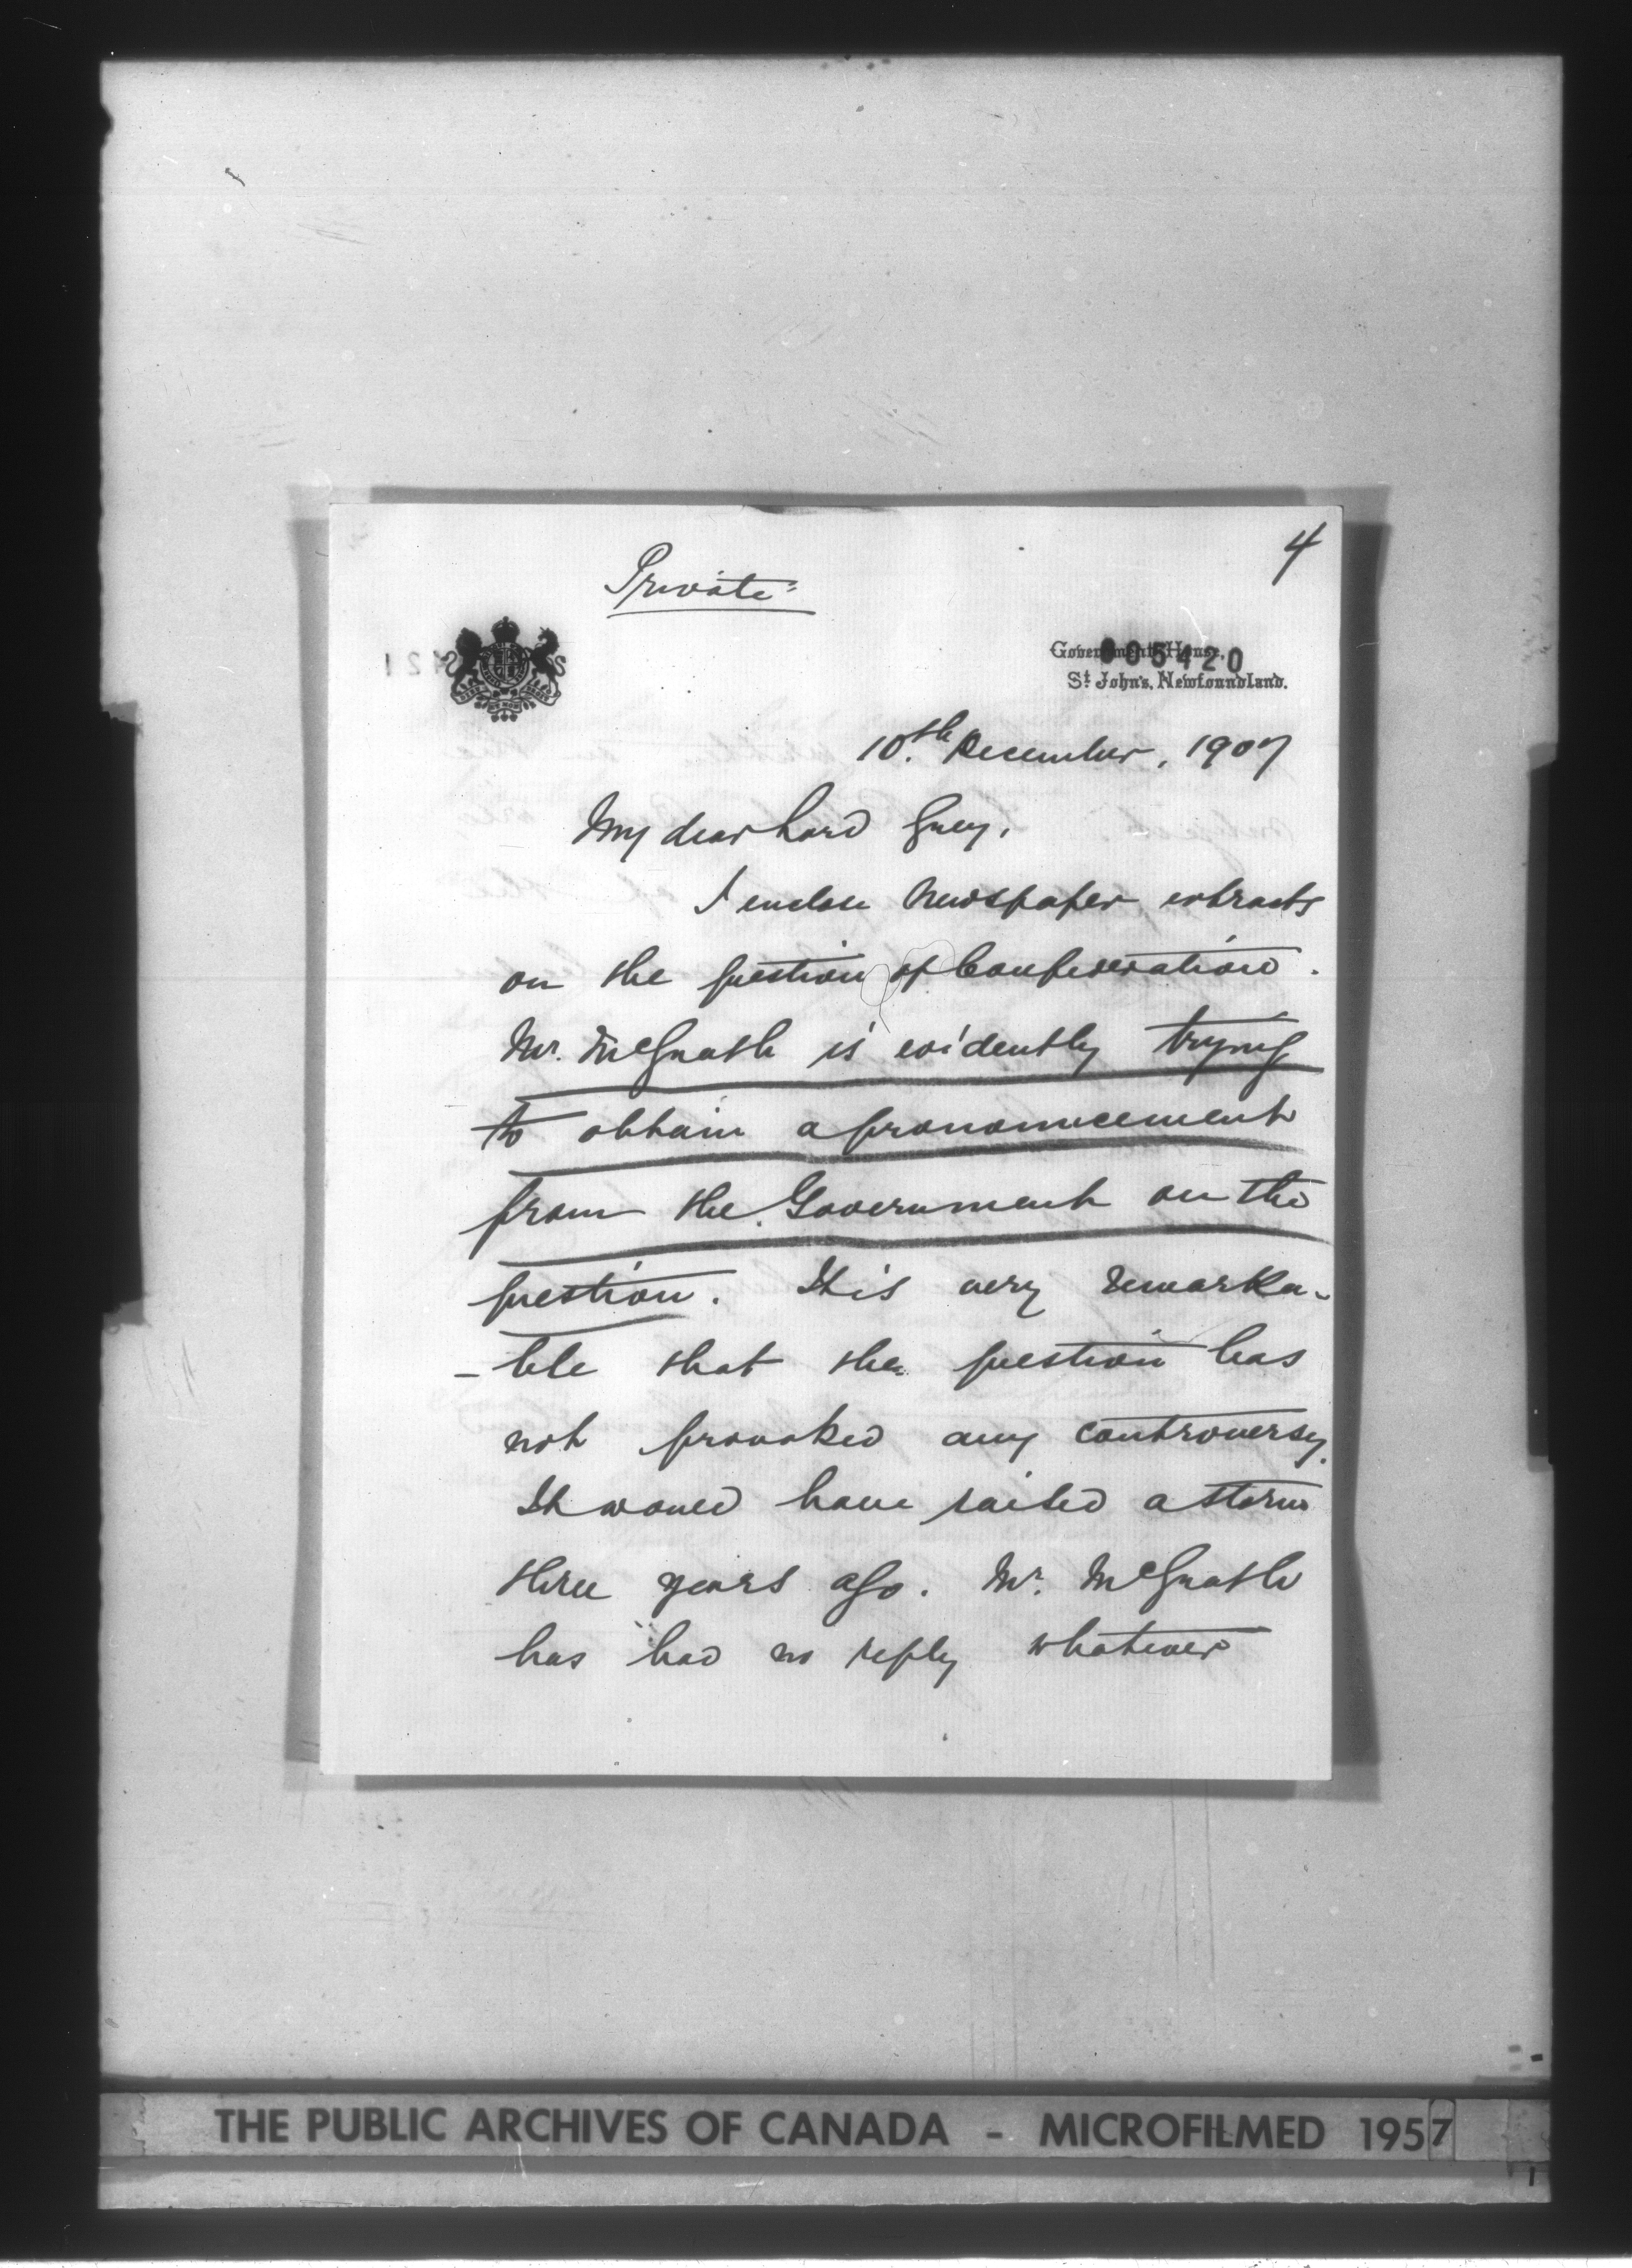 4
Private
005420
Government House,
St. John's, Newfoundland.
10th December, 1907
My dear Lord Grey,
I enclose Newspaper extracts
on the question of Confederation.
Mr. McGrath is evidently trying
to obtain a pronouncement
from the Government on the
question. It is very remarka-
-ble that the question has
not provoked any controversy.
It would have raised a storm
three years ago. Mr. McGrath
has had no reply whatever
THE PUBLIC ARCHIVES OF CANADA - MICROFILMED 1957